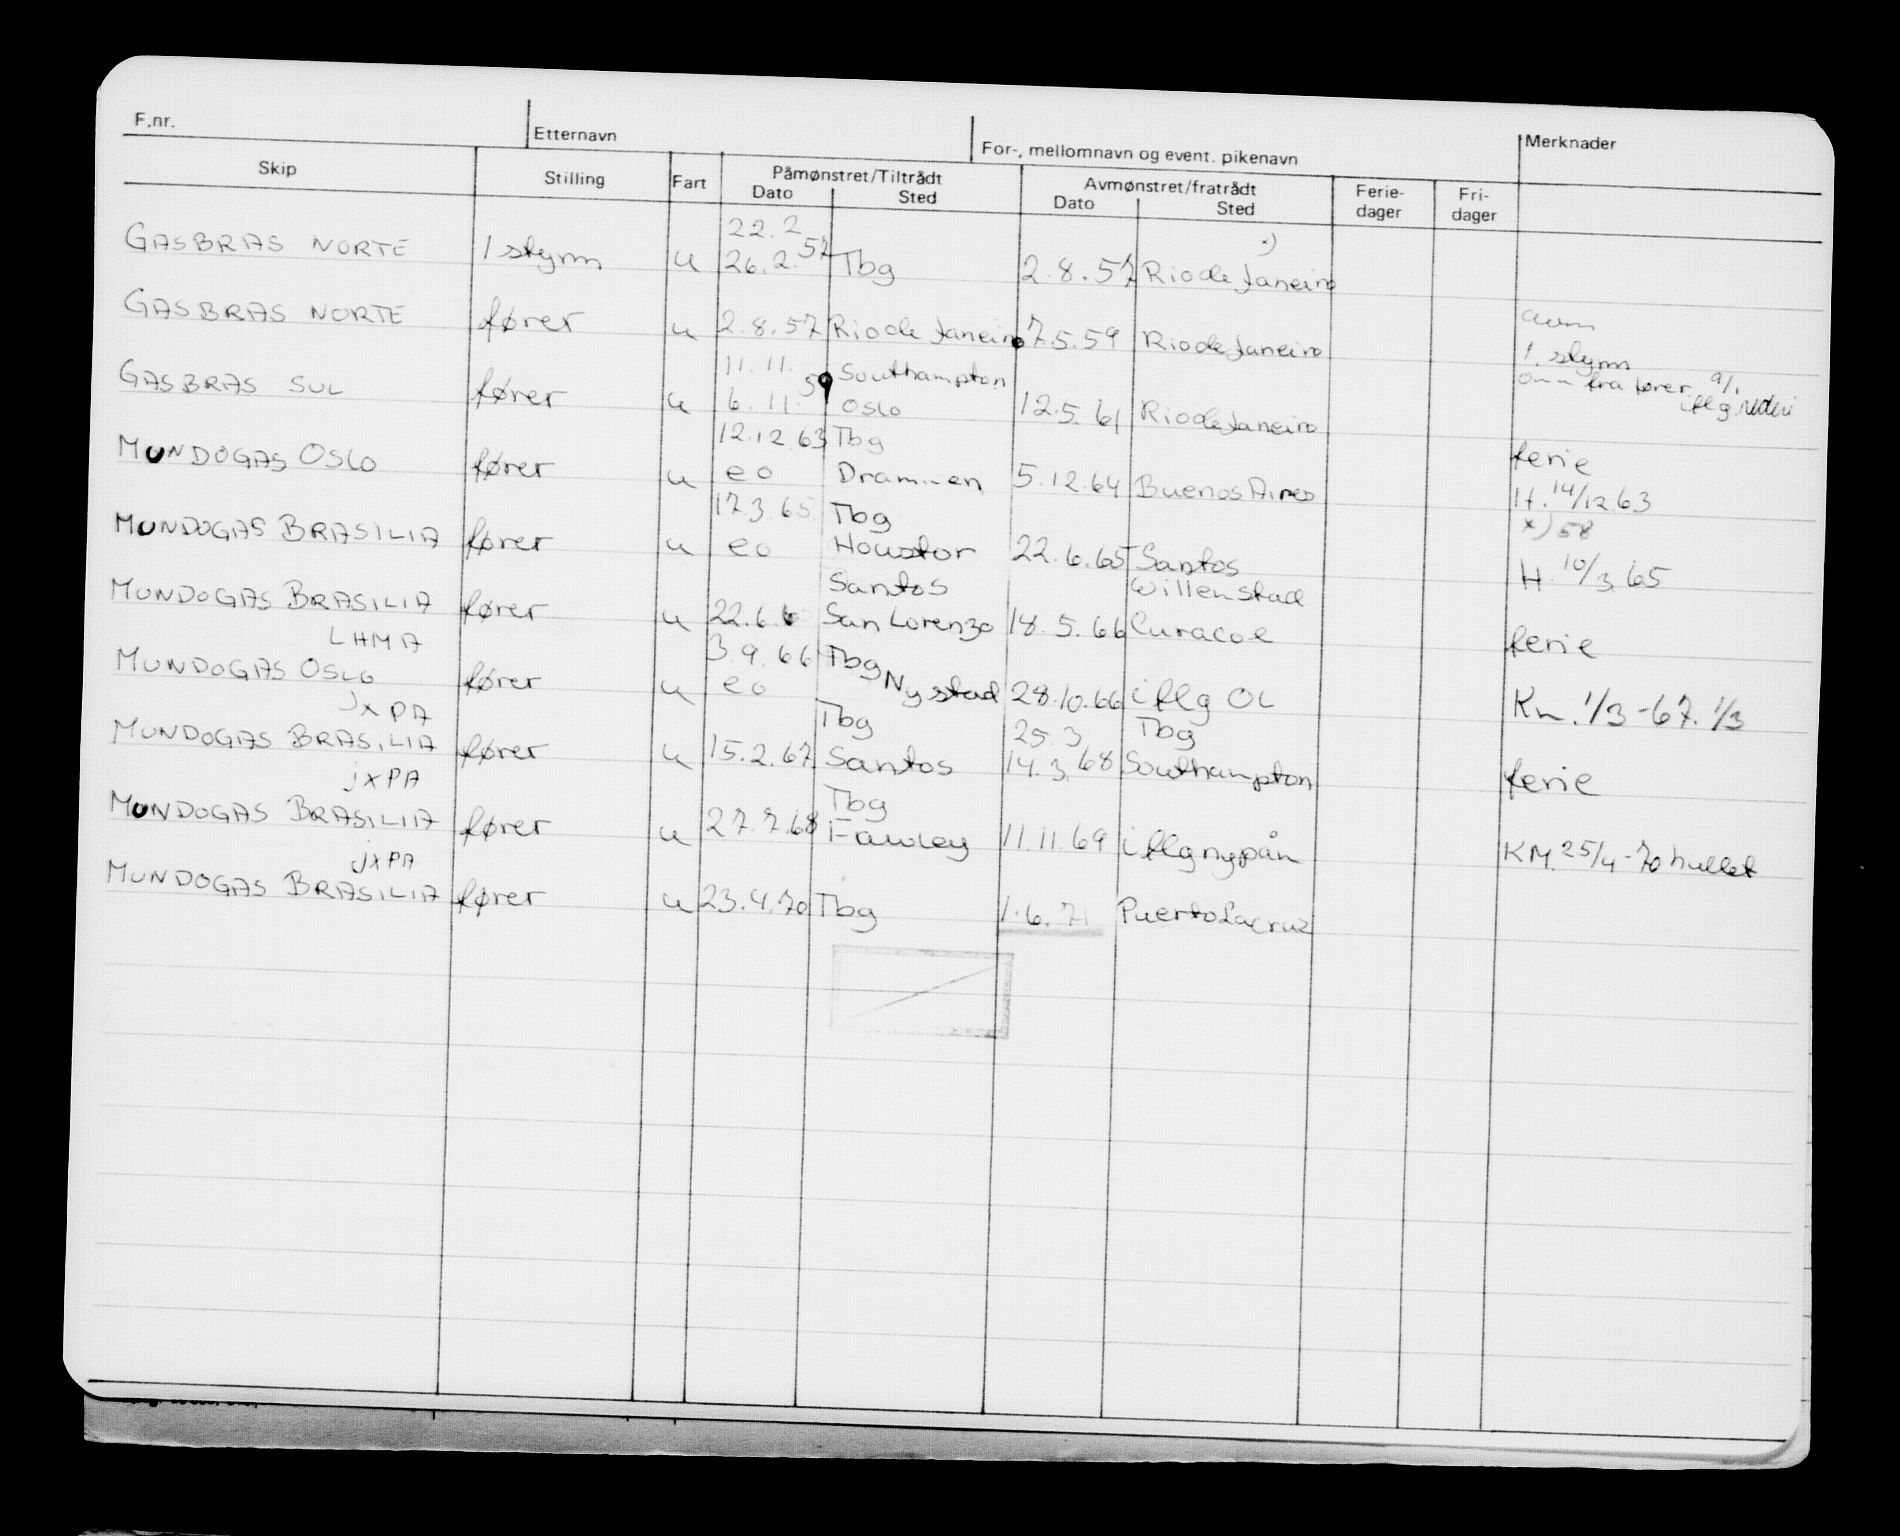 F.nr. Etternavn For-, mellomnavn og event. pikenavn Merknader
Skip Stilling Fart Påmønstret/Tiltrådt Avmønstret/fratrådt Ferie- Fri-
Dato Sted Dato Sted dager dager
22.2 x)
GASBRAS NORTE 1 styrm u 26.2.57 Tbg 2.8.57 Rio de Janeiro
GASBRAS NORTE fører u 2.8.57 Rio de Janeiro 7.5.59 Rio de Janeiro
1. styrm
11.11. Southampton fra fører iflg. rederi
GASBRAS SUL fører u 6.11.59 Oslo 12.5.61 Rio de Janeiro
12.12.63 Tbg ferie
MUNDOGAS OSLO fører u eo Drammen 5.12.64 Buenos Aires H. 14/12.63
17.3.65 Tbg x) 58
MUNDOGAS BRASILIA fører u eo Houston 22.6.65 Santos H. 10/3.65
Santos Willenstad
MUNDOGAS BRASILIA fører u 22.6.6 San Lorenzo 18.5.66 Curacoe ferie
LHMA 3.9.66 Tbg
MUNDOGAS OSLO fører u eo Nystad 28.10.66 iflg OL Kn. 1/3-67. 1/3
JXPA Tbg 25.3 Tbg
MUNDOGAS BRASILIA fører u 15.2.67 Santos 14.3.68 Southampton ferie
jXPA Tbg
MUNDOGAS BRASILIA fører u 27.7.68 Fawley 11.11.69 iflg nypån KM. 25/4-70 hullet
jXPA
MUNDOGAS BRASILIA fører u 23.4.70 Tbg 1.6.71 Puerto La cruz